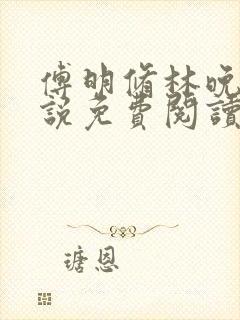 傅明脩林晚
說免費閱讀
瑭恩